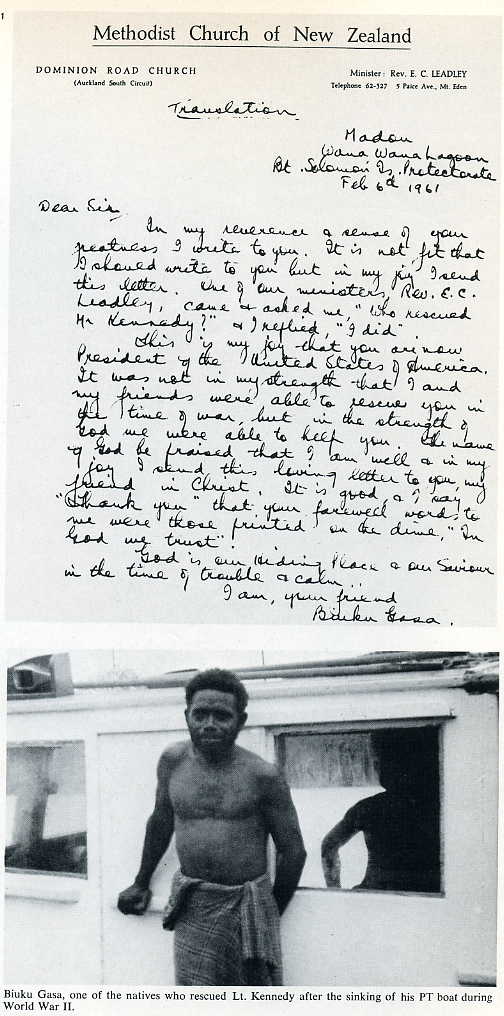 1
Methodist Church of New Zealand
DOMINION ROAD CHURCH
(Auckland South Circuit)
Minister: Rev. E. C. LEADLEY
Telephone 62-527 5 Paice Ave., Mt. Eden
Translation
Madou
Wana Wana Lagoon
Bt. Solomon Is. Protectorate
Feb 6th 1961
Dear Sir,
In my reverence & sense of your
greatness I write to you. It is not fit that
I should write to you but in my joy I send
this letter. One of our ministers, Rev. E.C.
Leadley, came & asked me, "Who rescued
Mr Kennedy?" & I replied, "I did".
This is my joy that you are now
President of the United States of America.
It was not in my strength that I and
my friends were able to rescue you in
the time of war, but in the strength of
God we were able to help you. The name
of God be praised that I am well & in my
joy I send this loving letter to you, my
friend in Christ. It is good & I say
"Thank you" that your farewell words to
me were those printed on the dime, "In
God we trust"
God is our Hiding Place & our Saviour
in the time of trouble & calm.
I am, your friend
Biuku Gasa.
Biuku Gasa, one of the natives who rescued Lt. Kennedy after the sinking of his PT boat during
World War II.